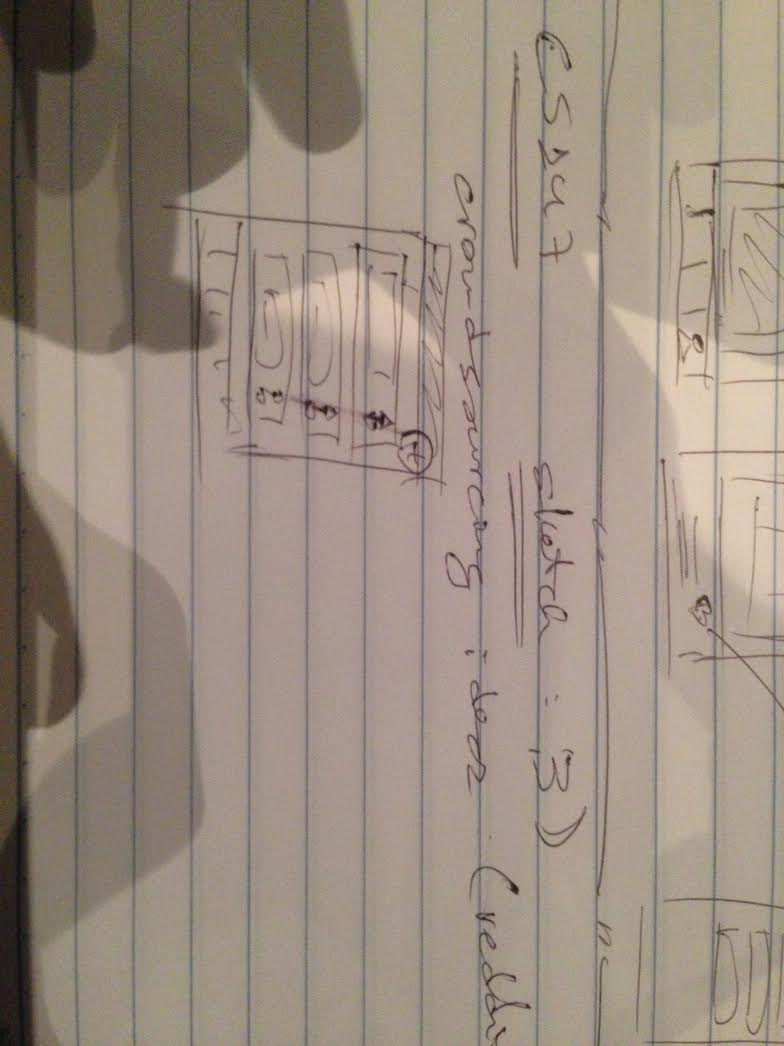 CS247 sketch : 3)
crowdsourcing ideas (reddi